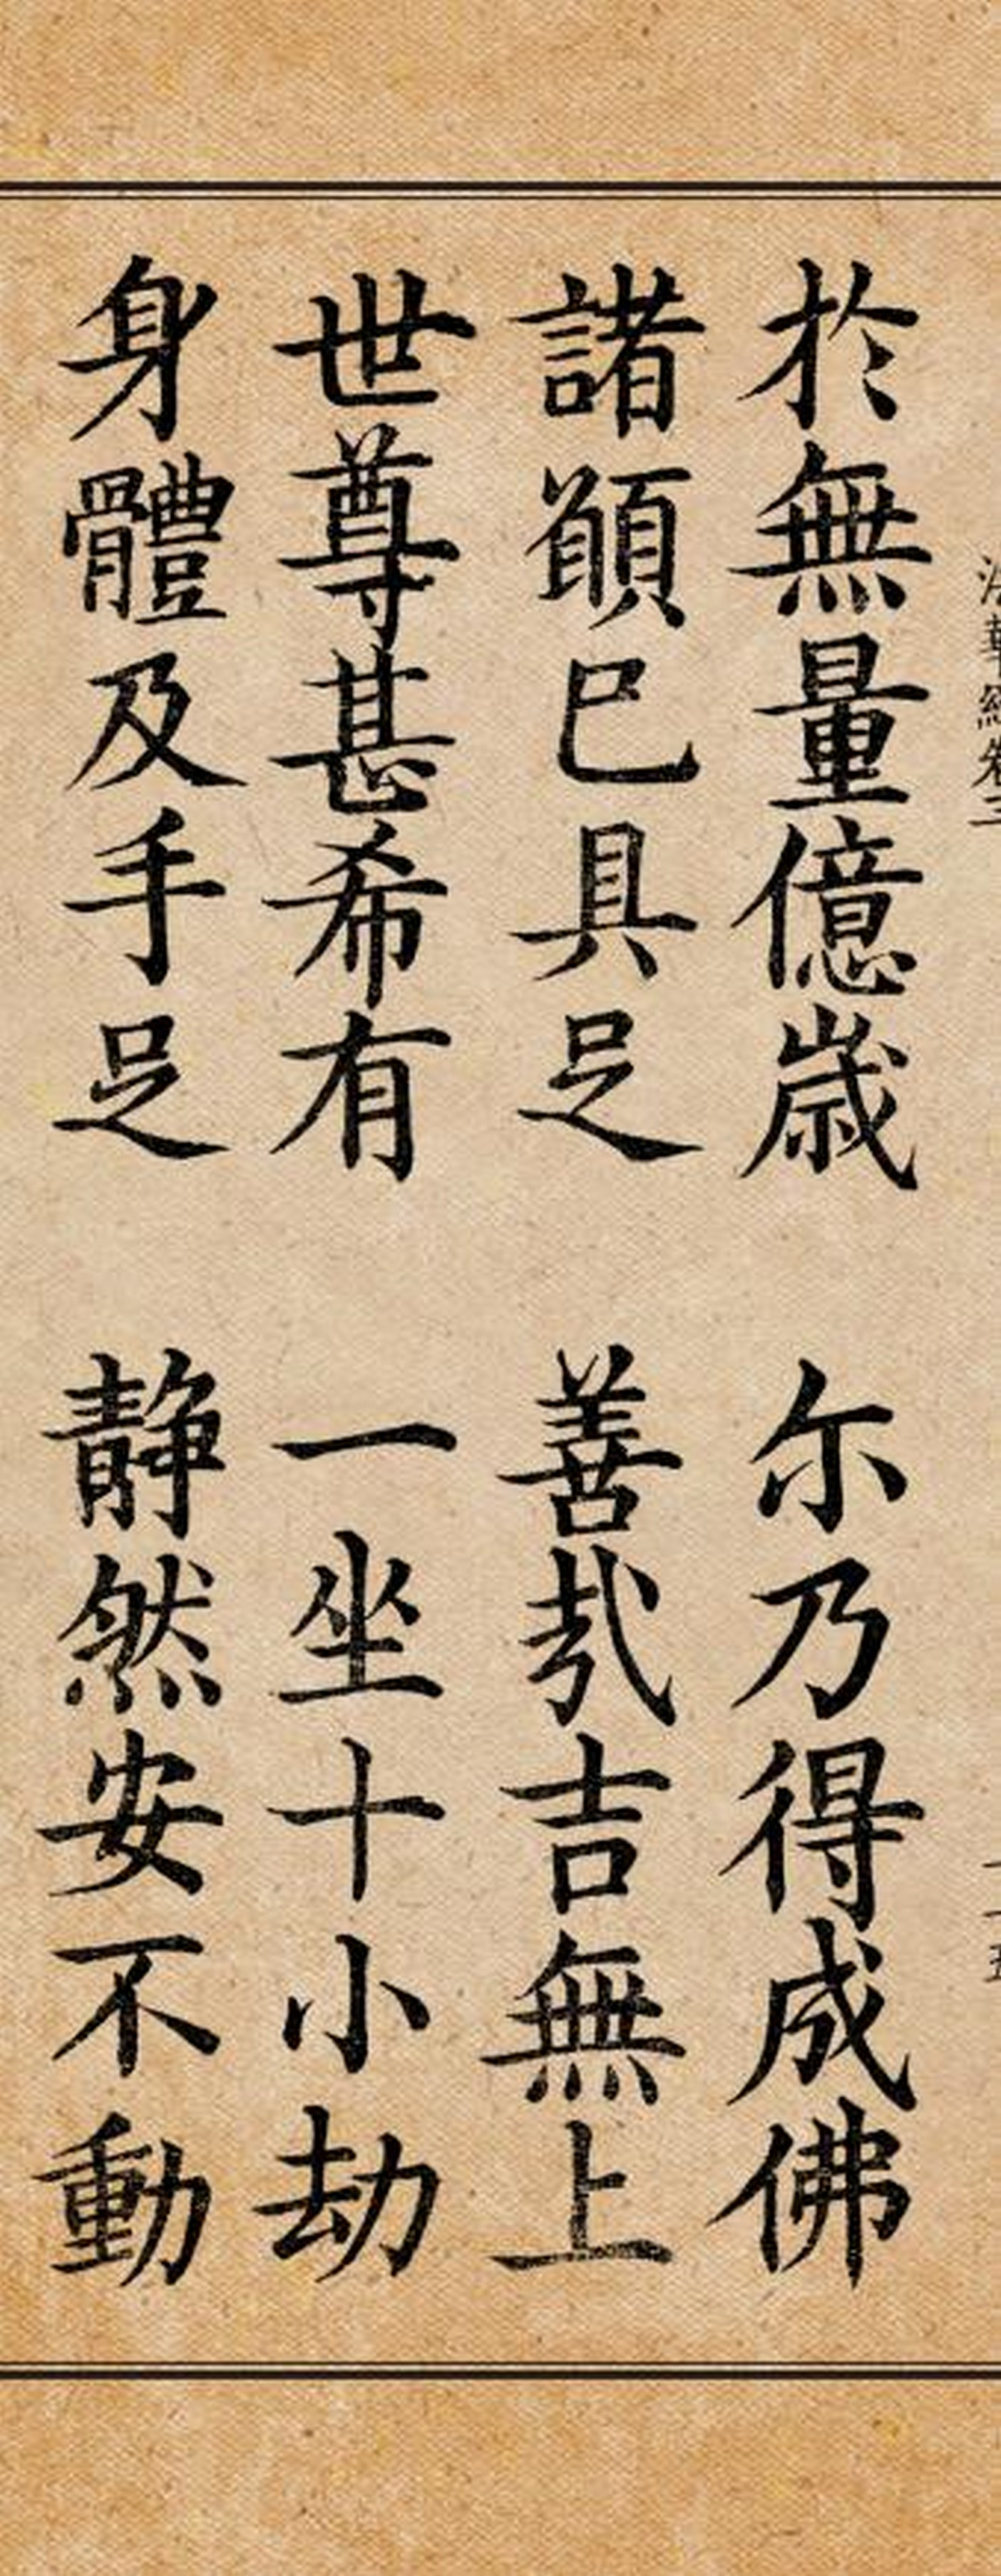 法華經卷三
於無量億歲 尒乃得成佛
諸願已具足 善哉吉無上
世尊甚希有 一坐十小劫
身體及手足 靜然安不動